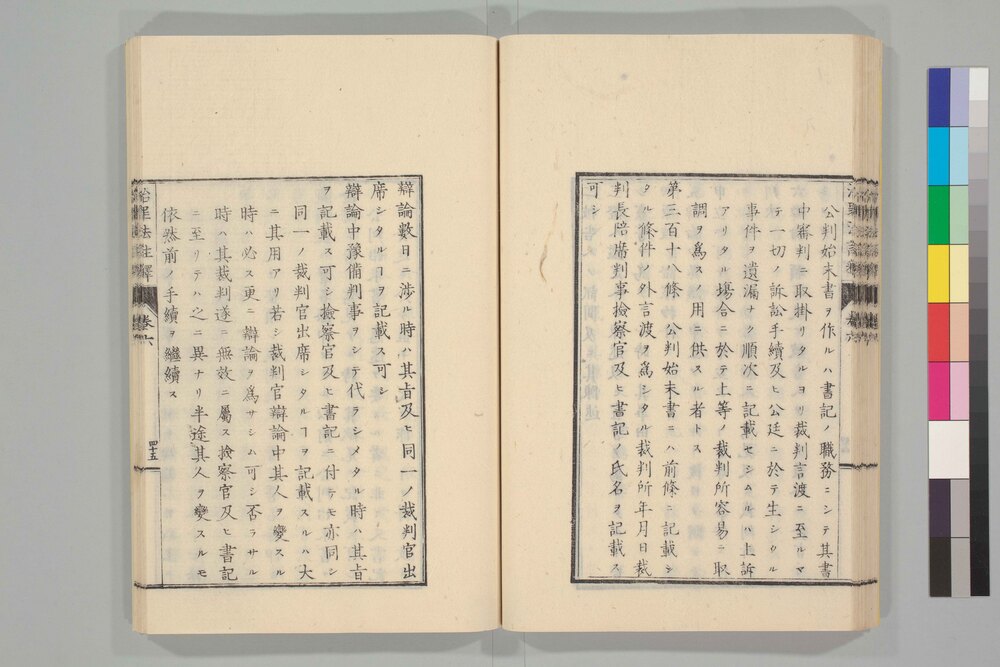 公判始末書ヲ作ルハ書記ノ職務ニシテ其書
中審判ニ取掛リタルヨリ裁判言渡ニ至ルマ
テ一切ノ訴訟手續及ヒ公廷ニ於テ生シタル
事件ヲ遺漏ナク順次ニ記載セシムルハ上訴
アリタル塲合ニ於テ上等ノ裁判所容易ク取
調ヲ爲スノ用ニ供スル者トス
第三百十八條 公判始末書ニハ前條ニ記載シ
タル條件ノ外言渡ヲ爲シタル裁判所年月日裁
判長陪席判事撿察官及ヒ書記ノ氏名ヲ記載ス
可シ
辯論數日ニ渉ル時ハ其旨及ヒ同一ノ裁判官出
席シタルヿヲ記載ス可シ
辯論中豫備判事ヲシテ代ラシメタル時ハ其旨
ヲ記載ス可シ撿察官及ヒ書記ニ付テモ亦同シ
同一ノ裁判官出席シタルヿヲ記載スルハ大
ニ其用アリ若シ裁判官辯論中其人ヲ變スル
時ハ必ス更ニ辯論ヲ爲サシム可シ否ラサル
時ハ其裁判遂ニ無效ニ屬ス撿察官及ヒ書記
ニ至リテハ之ニ異ナリ半途其人ヲ變スルモ
依然前ノ手續ヲ繼續ス
治罪法註釋 卷六 四十五